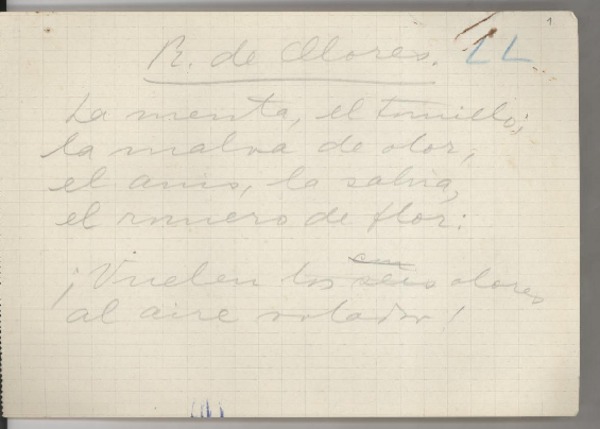 1
R. de Olores. LL
La menta, el tomillo,
la malva de olor,
el anís, la salvia,
el romero de flor:
¡Vuelen los seis olores
al aire volador!